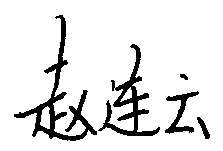 赵连云